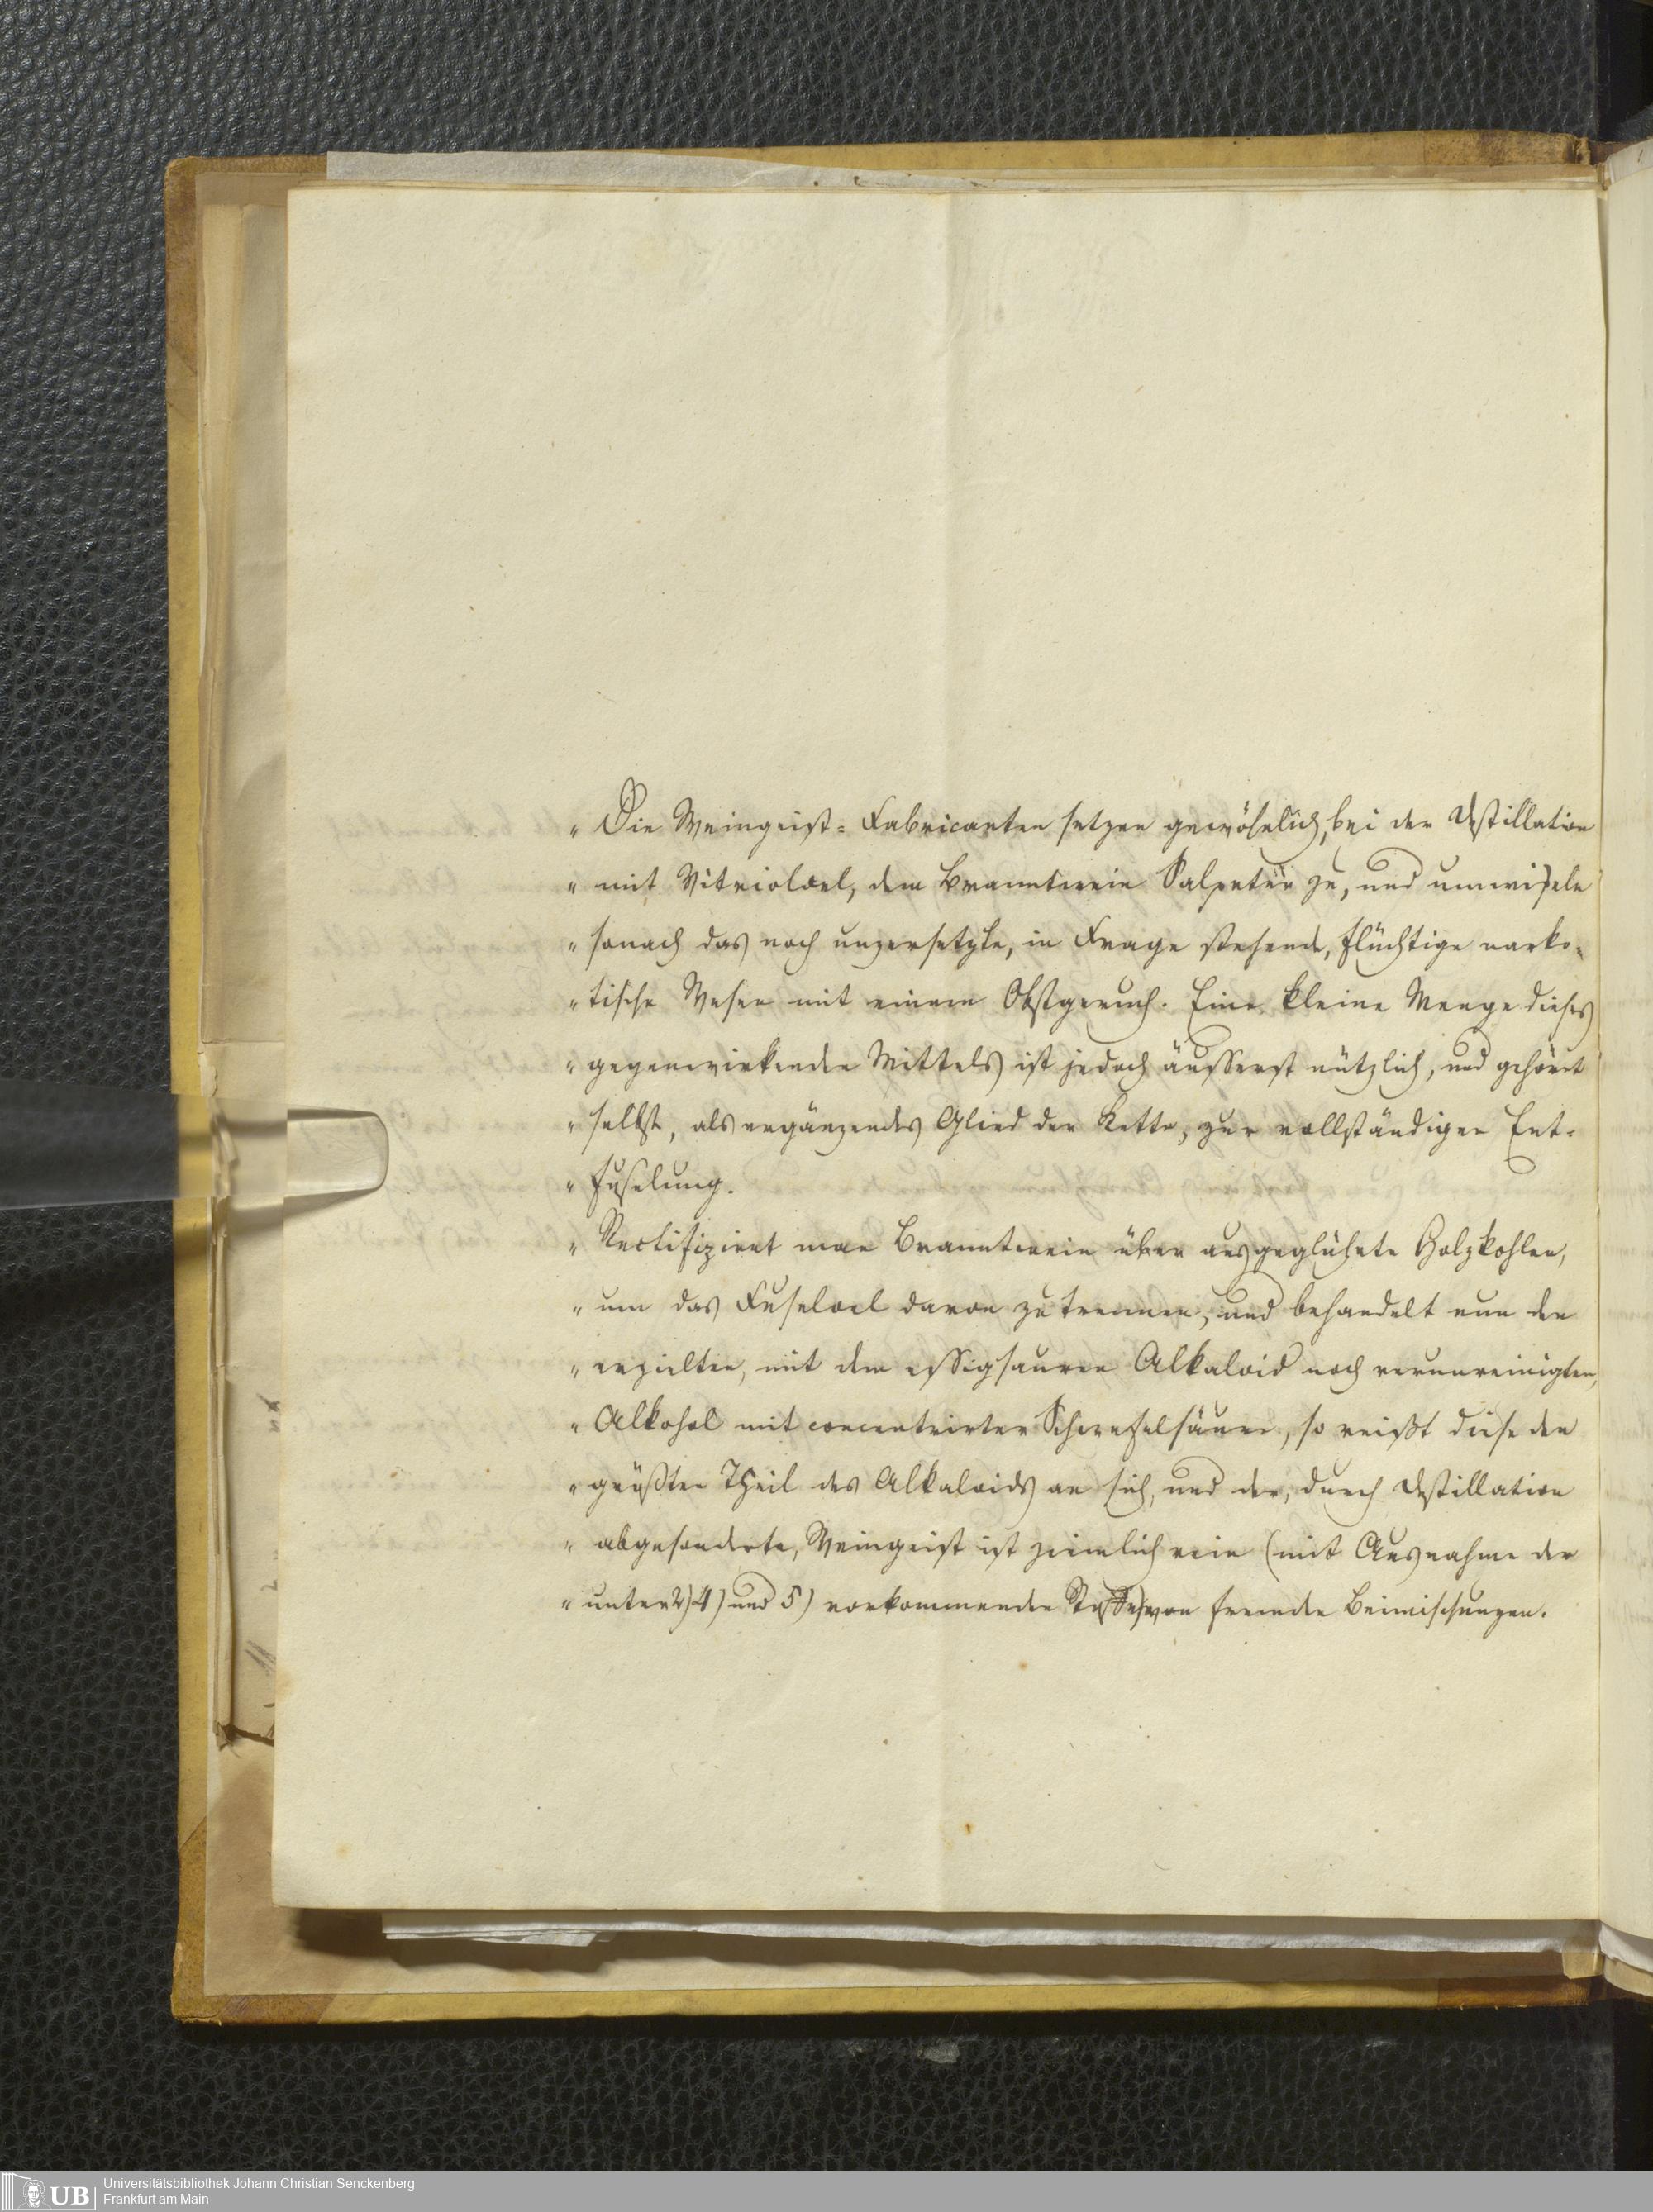 „ Die Weingeist-Fabricanten setzen gewöhnlich, bei der Destillation
„ mit Vitriolöel, dem Branntwein Salpeter zu, und umwikeln
„ sonach das noch unzersetzte, in Frage stehende, flüchtige narko-
„ tische Wesen mit einem Obstgeruch. Eine kleine Menge dieses
„ gegenwirkenden Mittels ist jedoch äusserst nützlich, und gehört
„ selbst, als ergänzendes Glied der Kette, zur vollständigen Ent-
„ fuselung.
„ Rectifizirt man Branntwein über ausgeglühete Holzkohlen,
„ um das Fuseloel davon zu trennen, und behandelt nun den
„ erzielten, mit dem essigsauren Alkaloid noch verunreinigten,
„ Alkohol mit concentrirter Schwefelsäure, so reißt diese den
„ größten Theil des Alkaloids an sich, und der, durch Destillation
„ abgesonderte, Weingeist ist ziemlich rein (mit Ausnahme der
„ unter 2) 4) und 5) vorkommenden Stoffe) von fremden Beimischungen.
UB Universitätsbibliothek Johann Christian Senckenberg
Frankfurt am Main